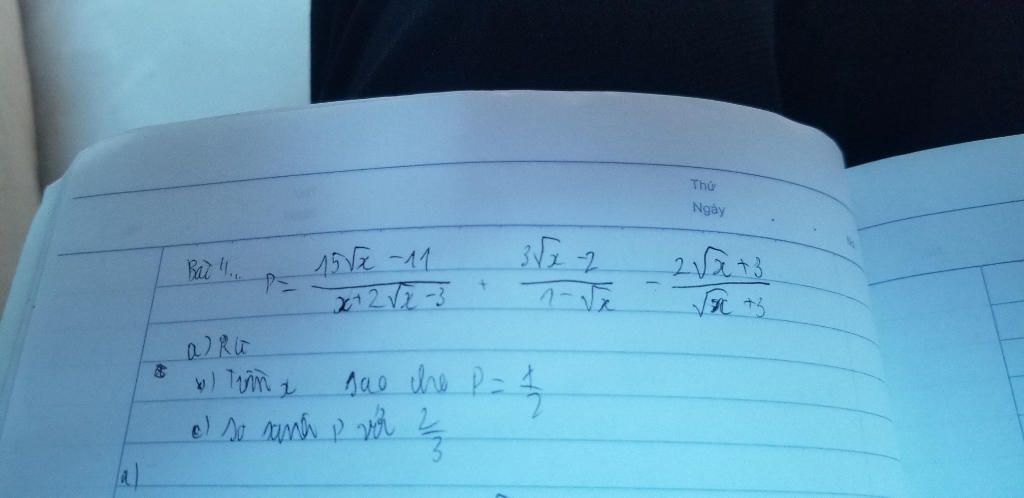 Thứ
Ngày
Bài 4.. P = \frac{15\sqrt{x} - 11}{x + 2\sqrt{x} - 3} + \frac{3\sqrt{x} - 2}{1 - \sqrt{x}} - \frac{2\sqrt{x} + 3}{\sqrt{x} + 3}
a) RG
b) Tìm x sao cho P = \frac{1}{2}
c) so sánh P với \frac{2}{3}
a)